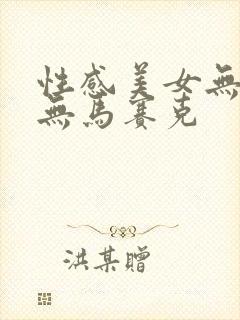 性感美女無
無馬賽克
洪某贈